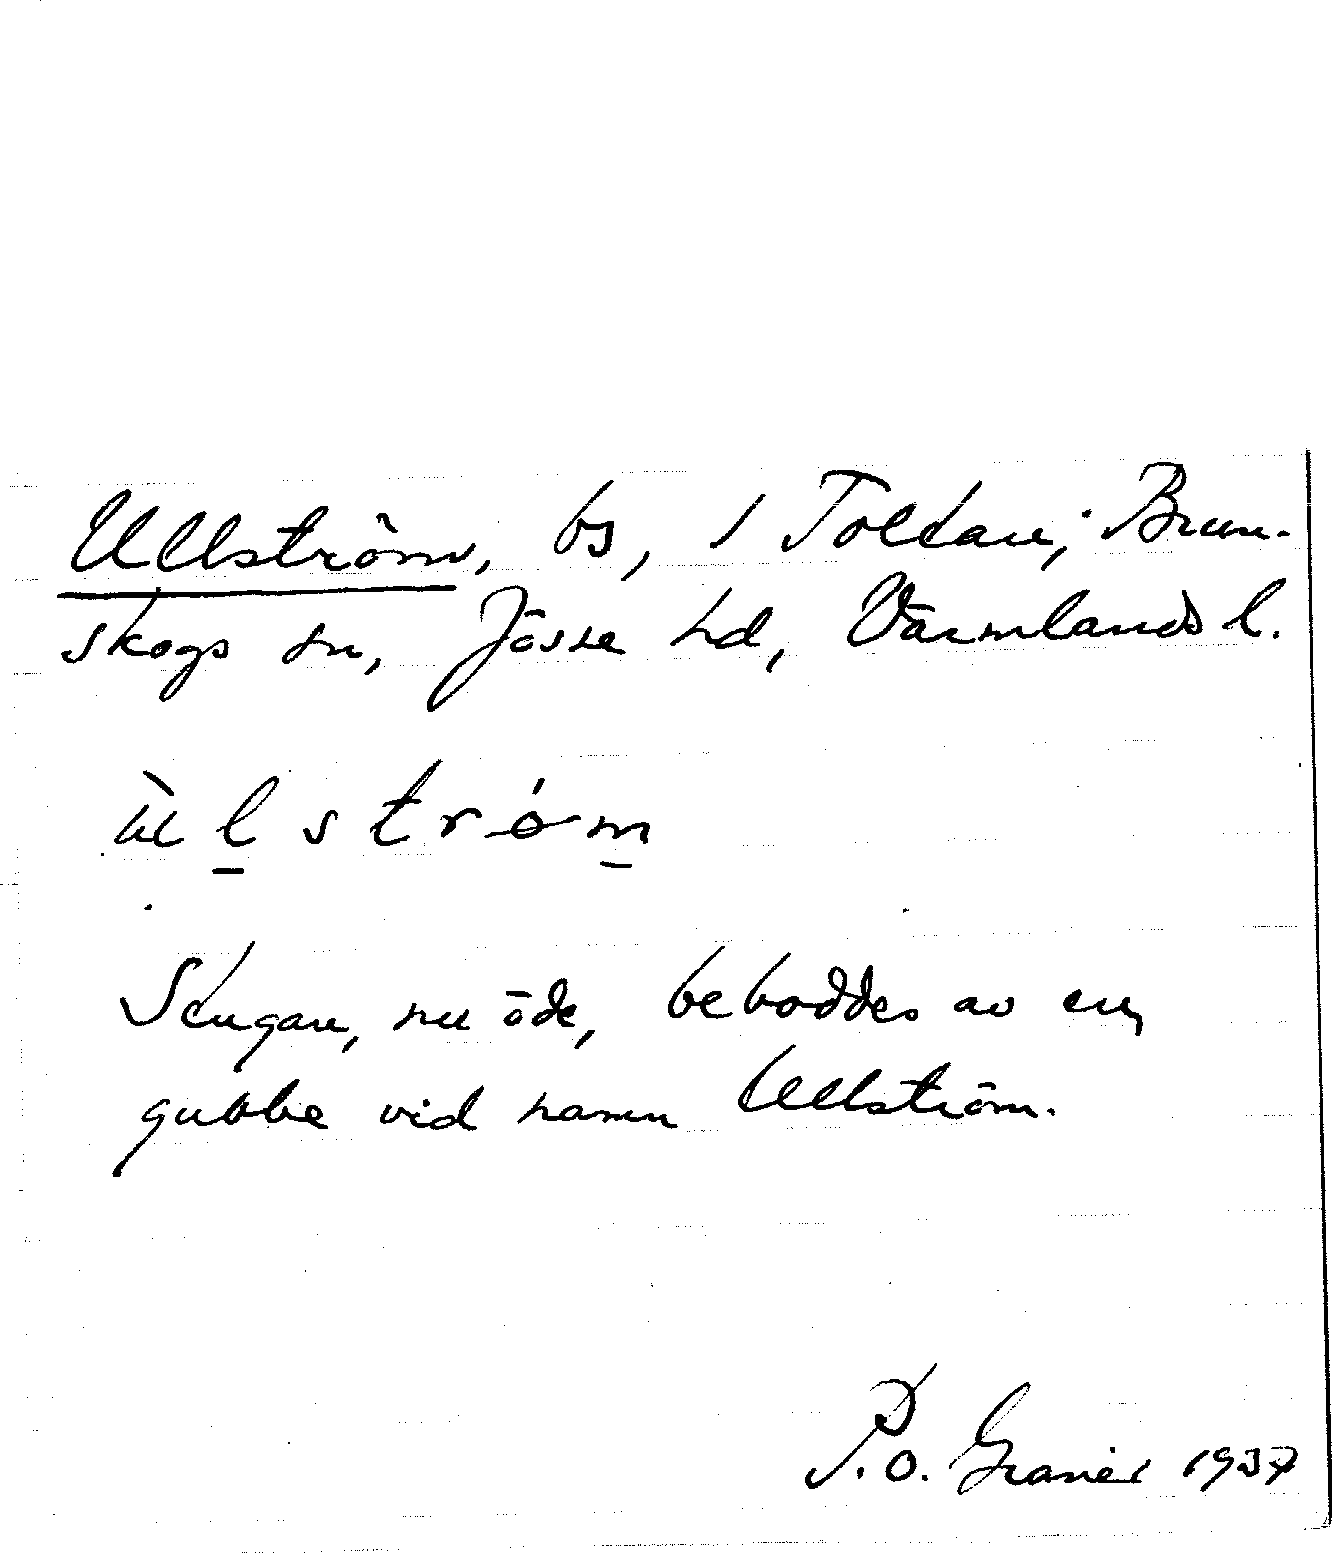 Ullström, bs, i Toltan, Brun-
skogs sn, Jösse hd, Värmlands l.
ùl strøm
Stugan, nu öde, beboddes av en
gubbe vid namn Ullström.
P.O. Granér 1937